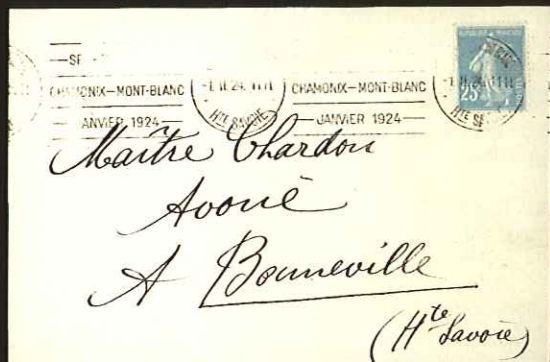 CHAMONIX-MONT-BLANC
ANVIER 1924
-1 II 24. 11
Hte SAVOIE
CHAMONIX-MONT-BLANC
JANVIER 1924
-1 II 24 11
Hte S
25
Maître Chardon
Avoué
A Bonneville
(Hte Savoie)